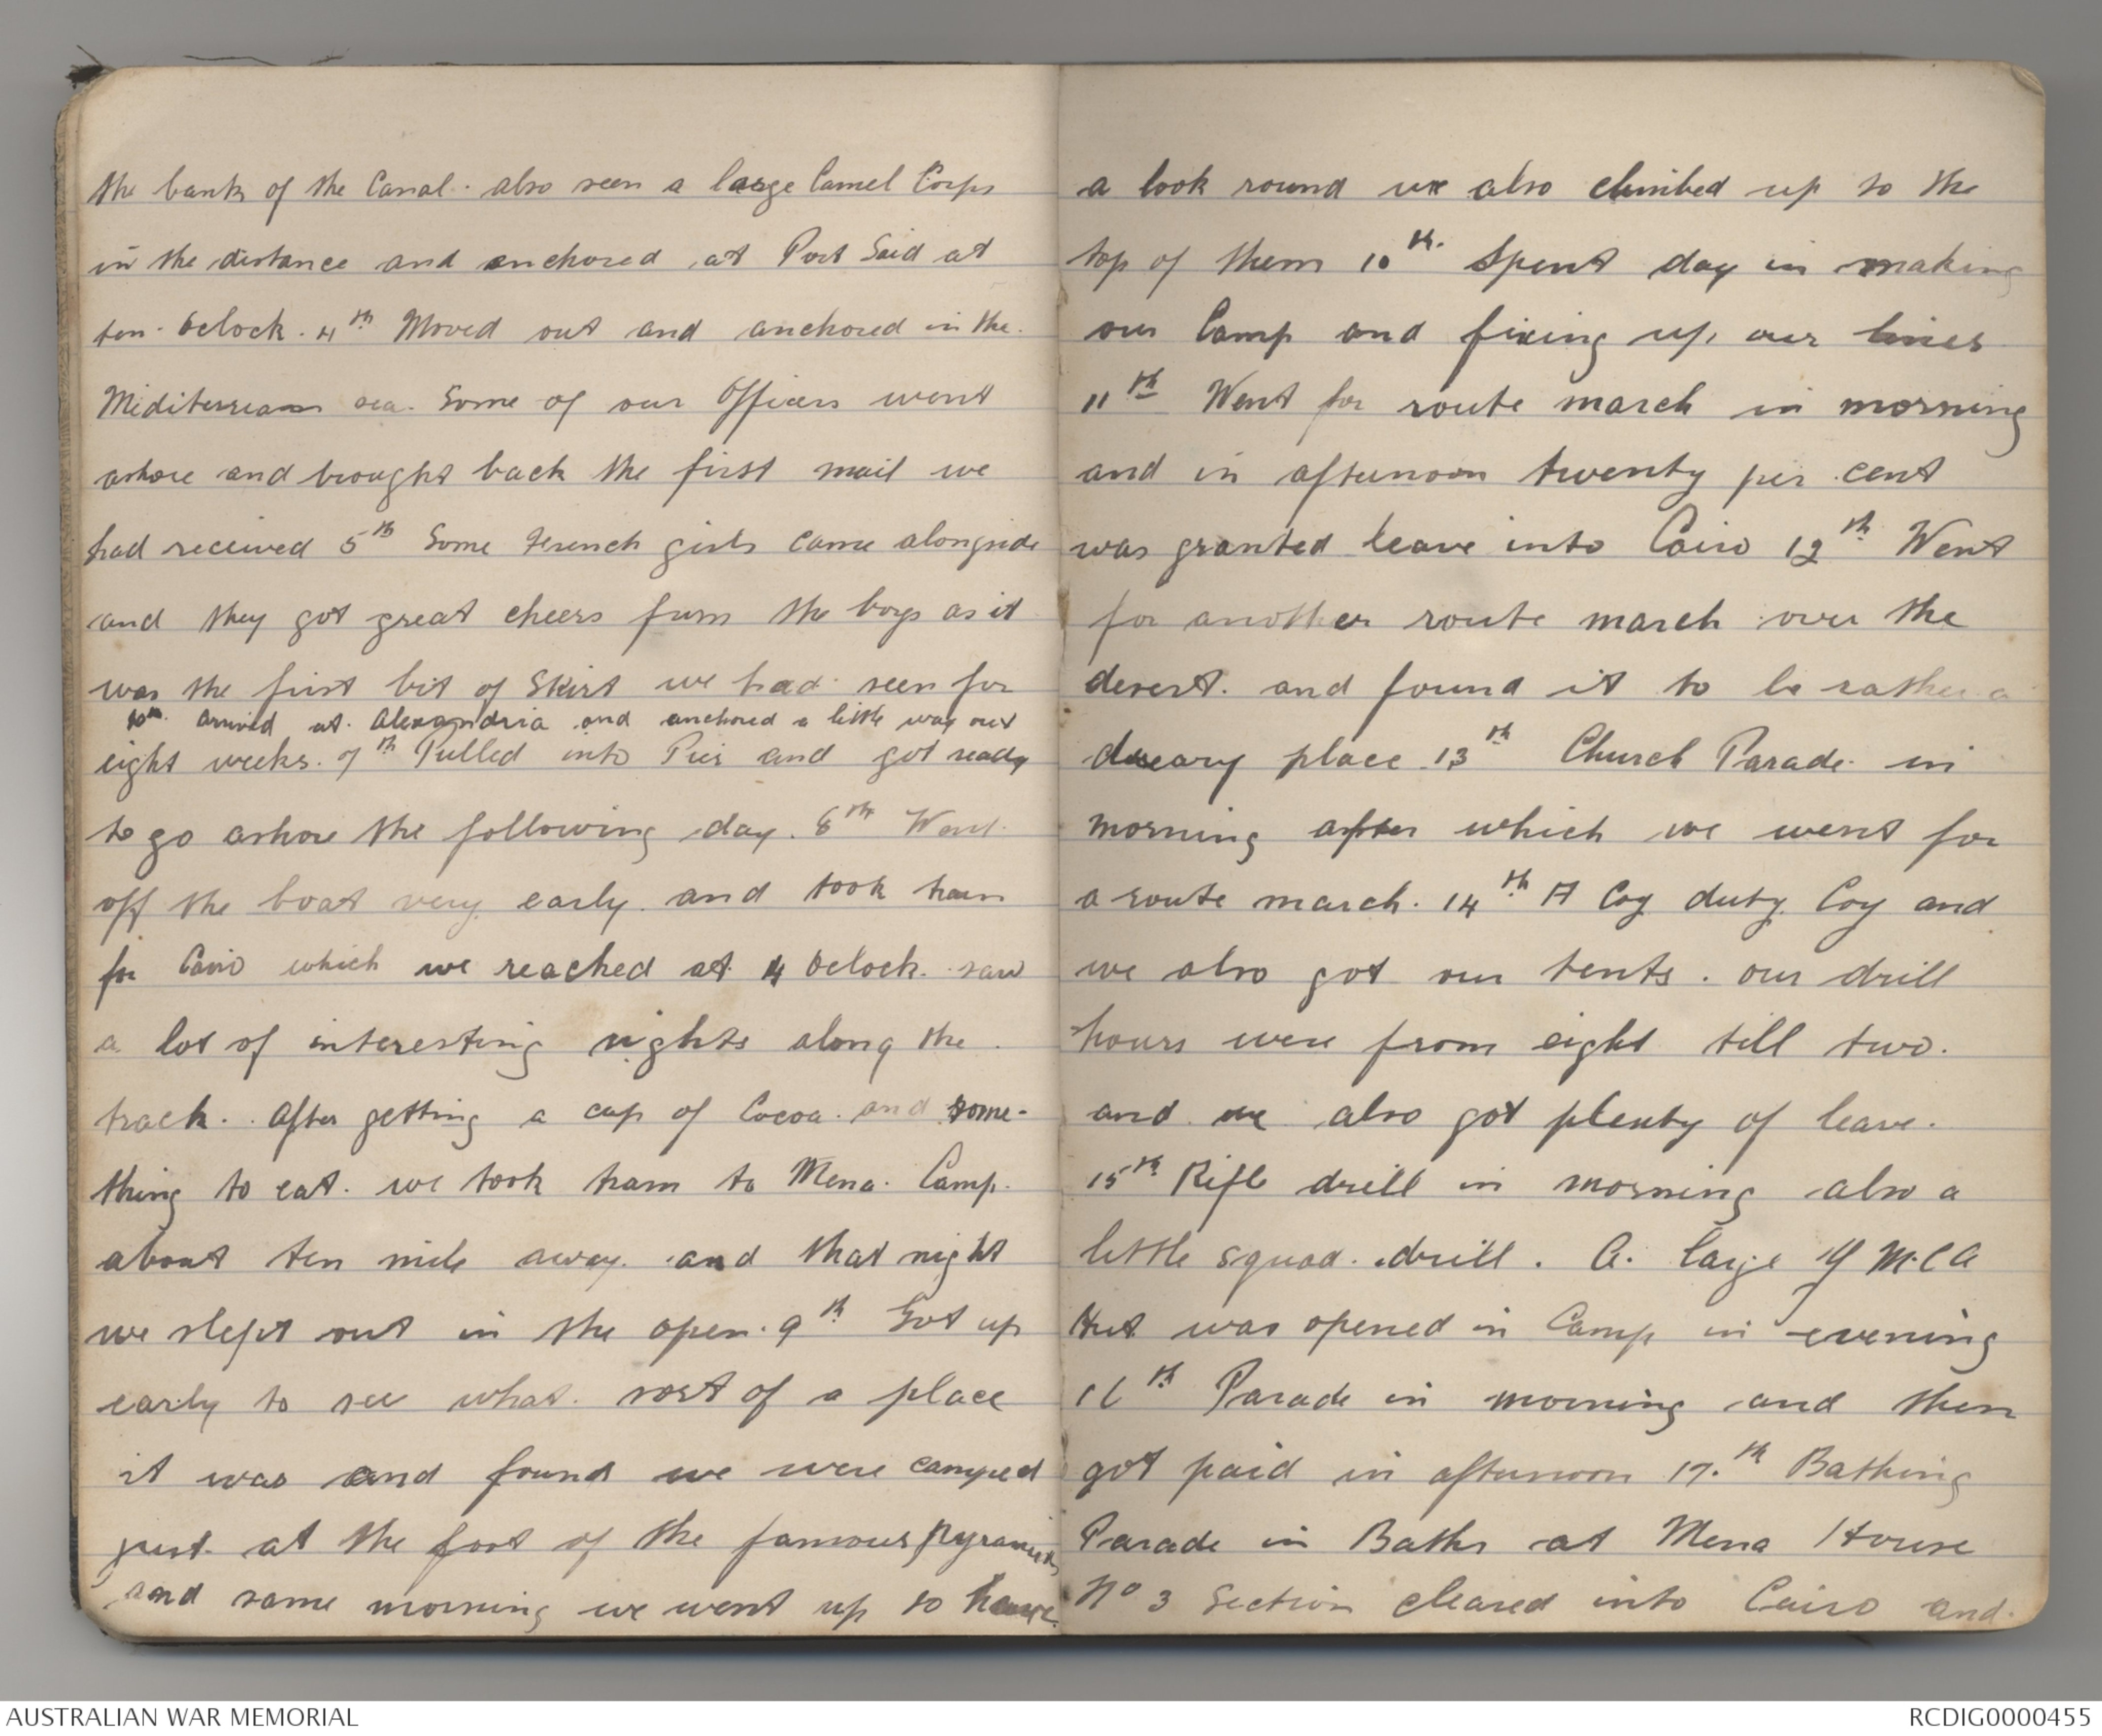 the bank of the Canal. also seen a large Camel Corps
in the distance and anchored at Port Said at
ten oclock. 4th Moved out and anchored in the.
Mediterrean sea. Some of our Officers went
ashore and brought back the first mail we
had received 5th Some French girls came alongside
and they got great cheers from the boys as it
was the first bit of Skirt we had seen for
arrived at Alexandria and anchored a little way out
eight weeks. 7th Pulled into Pier and got ready
to go ashore the following day. 8th Went
off the boat very early and took train
for Cairo which we reached at 4 oclock. saw
a lot of interesting sights along the.
track. After getting a cup of Cocoa and some-
thing to eat. we took tram to Mena Camp.
about ten mile away. and that night
we slept out in the open. 9th Got up
early to see what sort of a place
it was and found we were camped
just at the foot of the famous Pyramids
and same morning we went up to have
a look round we also climbed up to the
top of them 10th. Spent day in making
our Camp and fixing up our lines
11th Went for route march in morning
and in afternoon twenty per cent
was granted leave into Cairo 12th Went
for another route march over the
desert. and found it to be rather a
dreary place 13th Church Parade in
morning after which we went for
a route march. 14th A Coy duty Coy and
we also got our tents. our drill
hours were from eight till two.
and we also got plenty of leave.
15th Rifle drill in morning also a
little squad drill. A. large Y M.C A
Hut was opened in Camp in evening
16th Parade in morning and then
got paid in afternoon 17th Bathing
Parade in Baths at Mena House
No 3 Section cleared into Cairo and.
AUSTRALIAN WAR MEMORIAL
RCDIG0000455